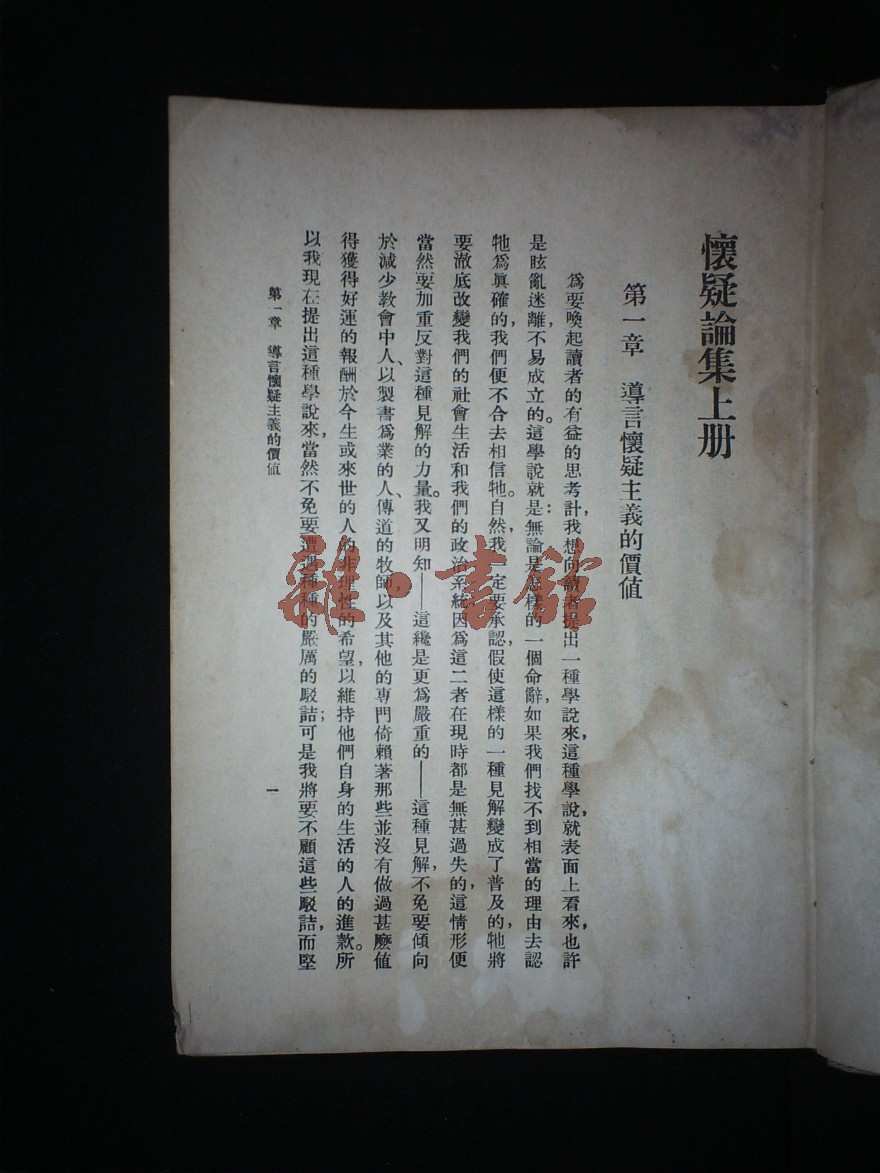 懷疑論集上册
第一章 導言懷疑主義的價值
爲要喚起讀者的有益的思考計，我想向讀者提出一種學說來，這種學說，就表面上看來，也許
是眩亂迷離，不易成立的。這學說就是：無論是怎樣的一個命辭，如果我們找不到相當的理由去認
牠爲眞確的，我們便不合去相信牠。自然，我一定要承認，假使這樣的一種見解變成了普及的，牠將
要澈底改變我們的社會生活和我們的政治系統因爲這二者在現時都是無甚過失的，這情形便
當然要加重反對這種見解的力量。我又明知——這纔是更爲嚴重的——這種見解，不免要傾向
於減少教會中人、以製書爲業的人、傳道的牧師，以及其他的專門倚賴著那些並沒有做過甚麽值
得獲得好運的報酬於今生或來世的人的非理性的希望，以維持他們自身的生活的人的進款。所
以我現在提出這種學說來，當然不免要遭遇種種的嚴厲的駁詰；可是我將要不顧這些駁詰，而堅
第一章 導言懷疑主義的價值
一
雜·書館